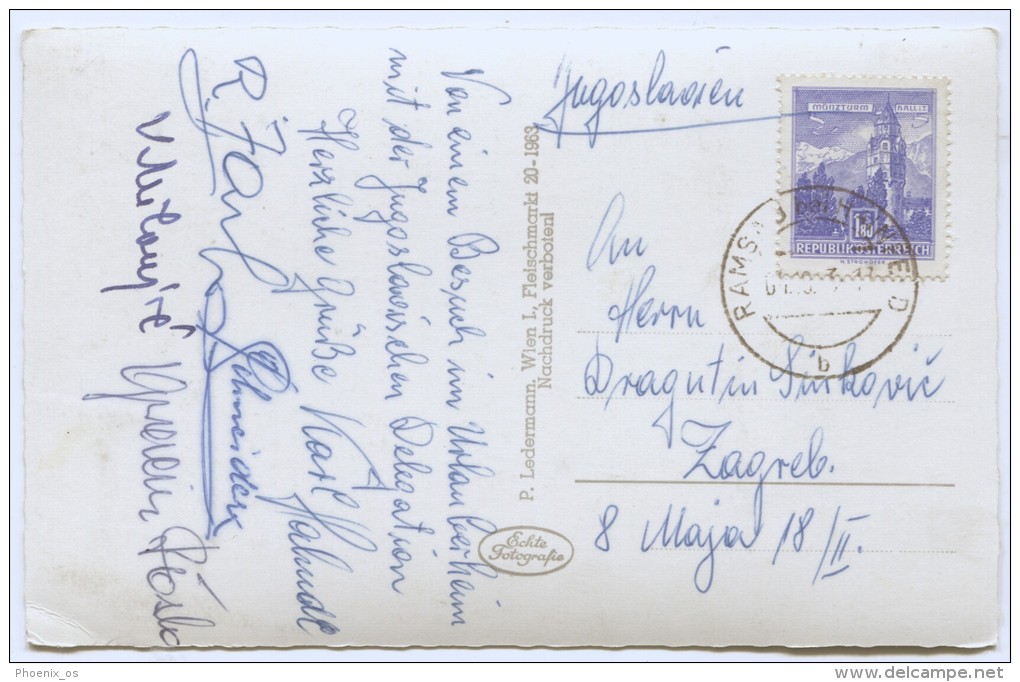 Jugoslavien
MÜNZTURM HALL i.T.
1.80
REPUBLIK ÖSTERREICH
b
An
Herrn
Dragutin Sirković
Zagreb.
8 Maja 18/II.
P. Ledermann, Wien I., Fleischmarkt 20-1963
Nachdruck verboten!
Echte
Fotografie
Von einem Besuch im Urlauberheim
mit der Jugoslawischen Delegation
Herzliche Grüße Karl
R.
Schneider
Phoenix_os
delcampe.net